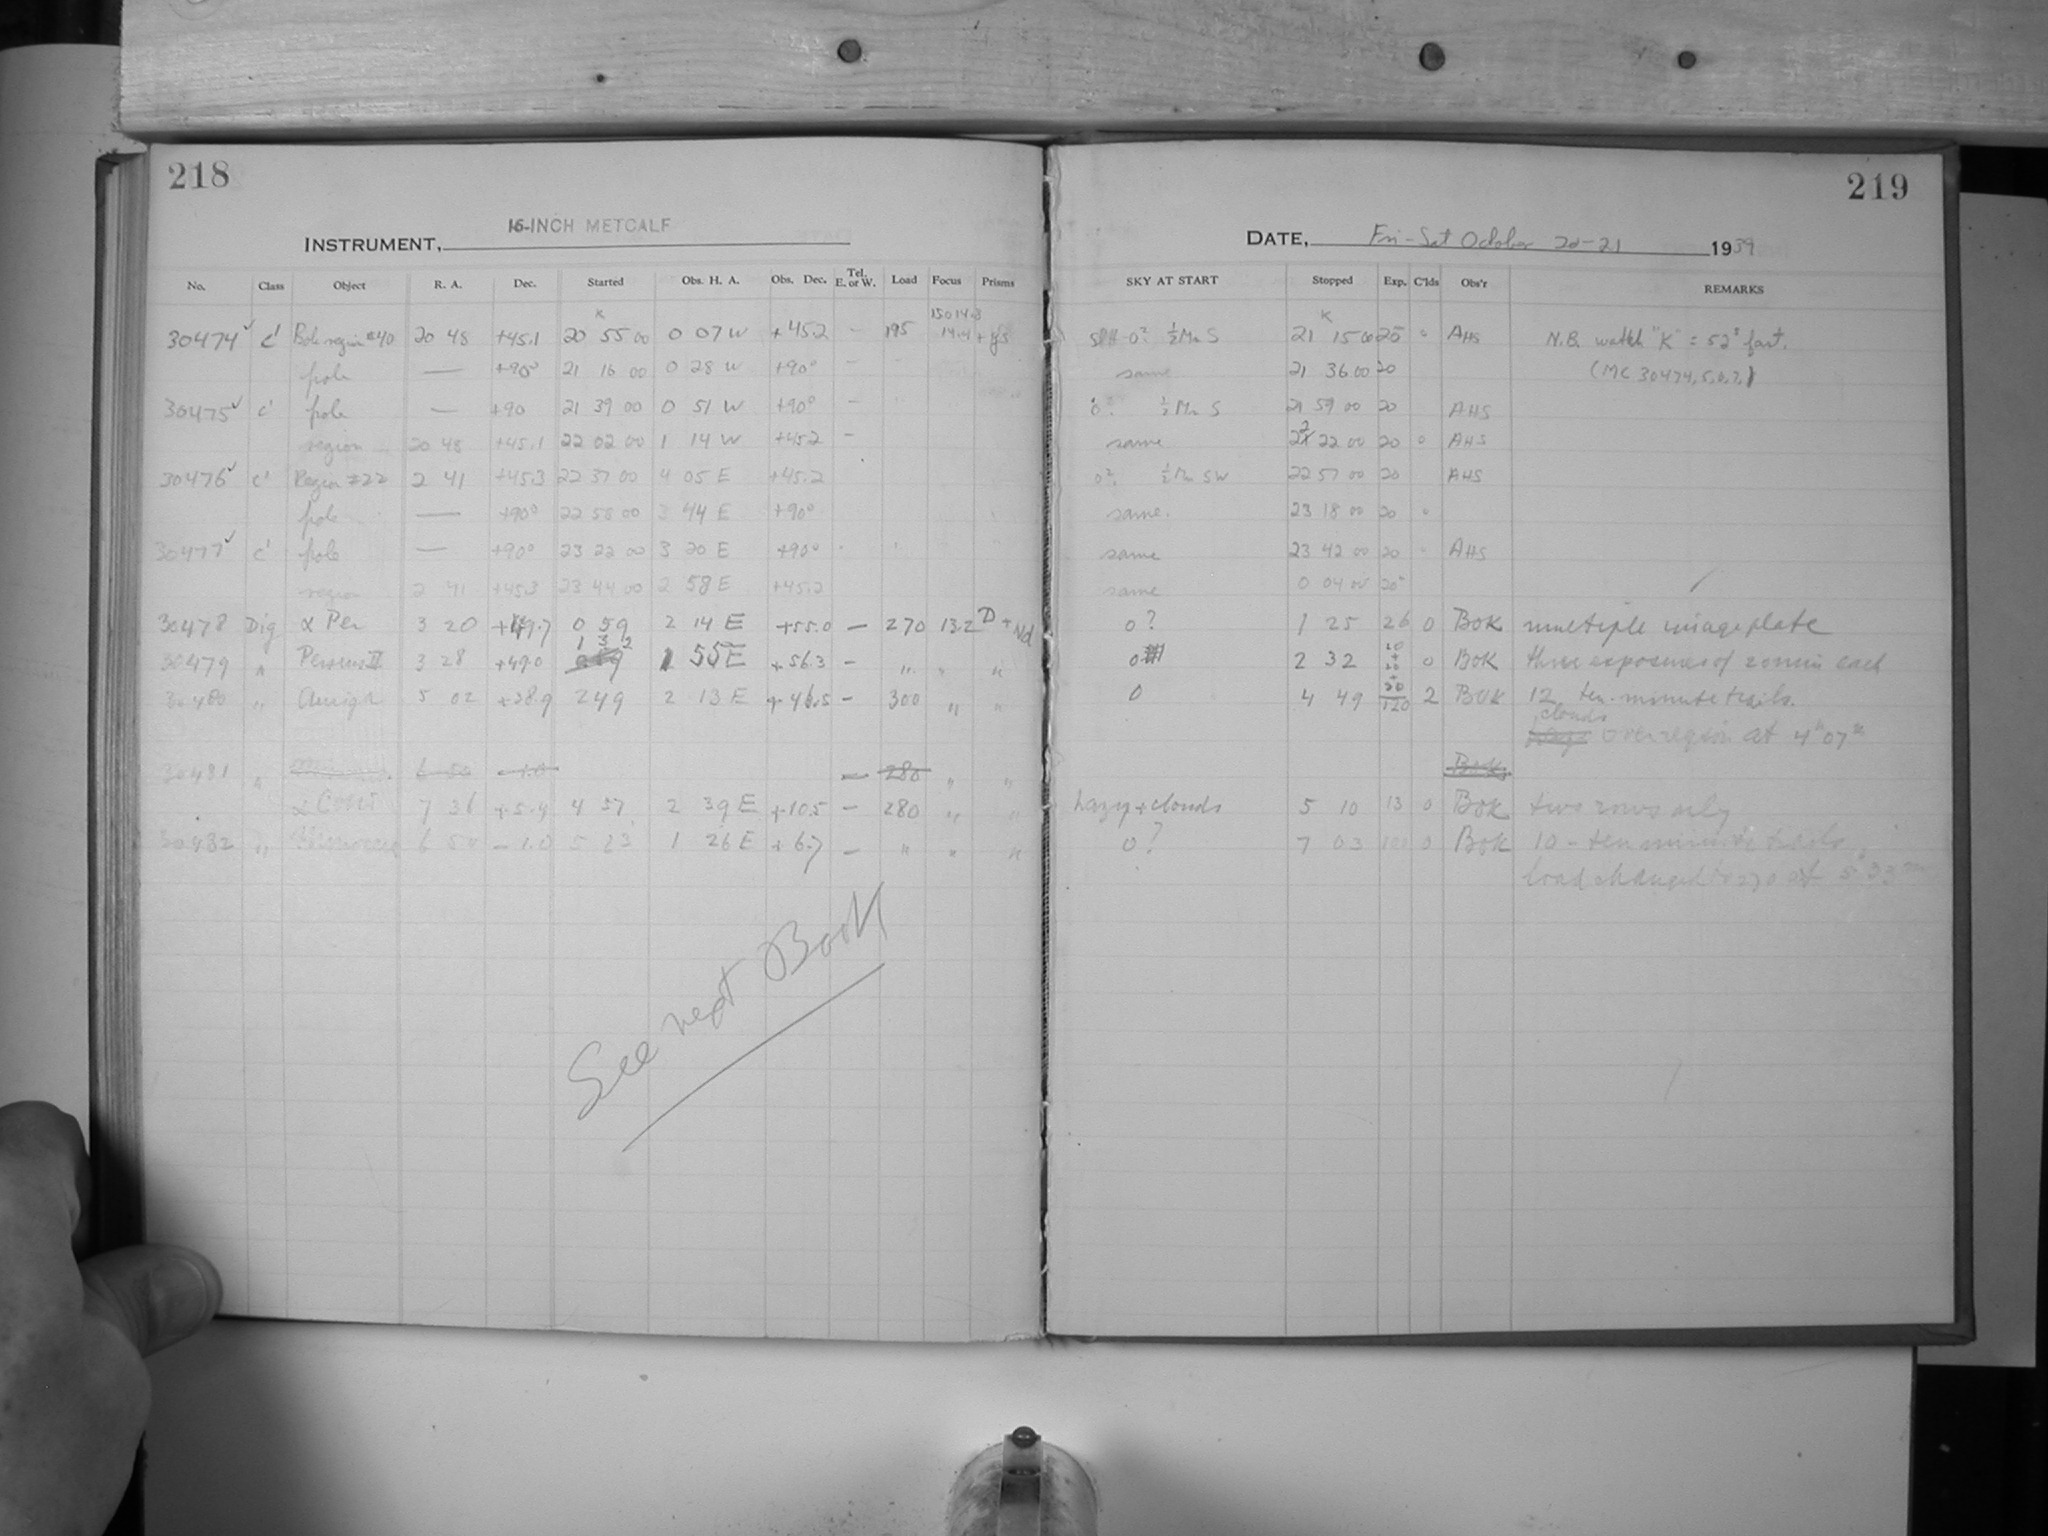 218
219
16-INCH METCALF
INSTRUMENT,
DATE, Fri-Sat October 20-21 1939
No. Class Object R. A. Dec. Started Obs. H. A. Obs. Dec. Tel. E. or W. Load Focus Prisms SKY AT START Stopped Exp. C'lds Obs'r REMARKS
30474 c' Bok region #40 20 48 +45.1 20 55 00 0 07 W +45.2 — 195 14.4 ½ Mn S 21 15 00 20 0 AHS N.B. watch "K" = 52s fast.
pole — +90° 21 16 00 0 28 W +90° — same 21 36 00 20 (MC 30474, 5, 6, 7)
30475 c' pole — +90 21 39 00 0 51 W +90° - ½ Mn S 21 59 00 20 AHS
region 20 48 +45.1 22 02 00 1 14 W +45.2 — same 22 22 00 20 0 AHS
30476 c' Region #22 2 41 +45.3 22 37 00 4 05 E +45.2 ½ Mn SW 22 57 00 20 AHS
pole — +90° 22 58 00 3 44 E +90° same. 23 18 00 20 0
30477 c' pole — +90° 23 22 00 3 20 E +90° same 23 42 00 20 AHS
region 2 41 +45.3 23 44 00 2 58 E +45.2 same 0 04 00 20
30478 Dig α Per 3 20 +49.7 0 59 2 14 E +55.0 — 270 13.2 D + Nd 0? 1 25 26 0 BOK multiple image plate
30479 " Perseus II 3 28 +49.0 1 32 1 55 E +56.3 — " " " 0 2 32 20 + 20 + 20 0 BOK three exposures of 20 min each
30480 " Auriga 5 02 +38.9 2 49 2 13 E +46.5 — 300 " " 0 4 49 120 2 BOK 12 ten-minute trails.
clouds over region at 4h 07m
30481 " 6 50 -1.0 — 280 " " Bok
α 7 36 +5.4 4 57 2 39 E +10.5 — 280 " " hazy + clouds 5 10 13 0 BOK two rows only
30482 " Monoceros 6 50 -1.0 5 23 1 26 E +6.7 — " " " 0? 7 03 100 0 BOK 10 - ten minute trails.
load changed to 270 at 5h 33m
See next Book